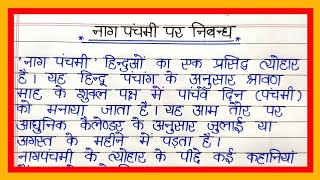 नाग पंचमी पर निबन्ध
'नाग पंचमी' हिन्दुओं का एक प्रसिद्ध त्योहार
है। यह हिन्दू पंचांग के अनुसार श्रावण
माह के शुक्ल पक्ष में पांचवें दिन (पंचमी)
को मनाया जाता है। यह आम तौर पर
आधुनिक कैलेण्डर के अनुसार जुलाई या
अगस्त के महीने में पड़ता है।
नागपंचमी के त्योहार के पीछे कई कहानियां